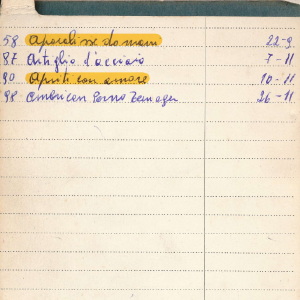 58 Apocalisse domani 22-9
87 Artiglio d'acciaio 7-11
90 Apriti con amore 10-11
98 American Porno Teenager 26-11